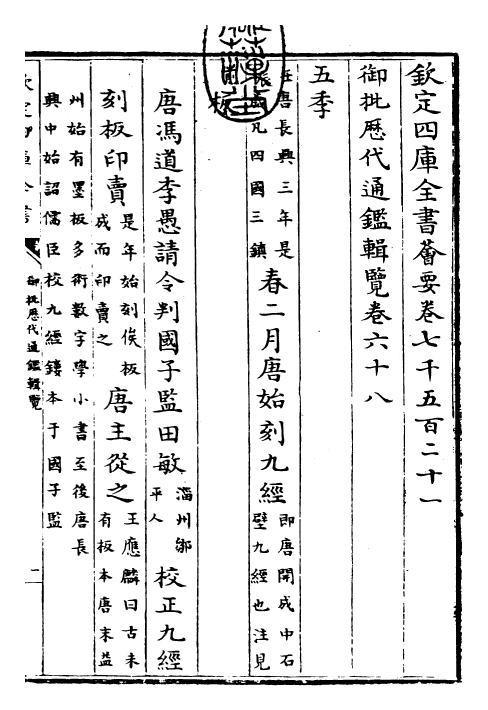 欽定四庫全書薈要卷七千五百二十一
御批歷代通鑑輯覽卷六十八
五季
唐長興三年是
凡四國三鎮
春二月唐始刻九經
即唐開成中石
壁九經也注見
板
唐馮道李愚請令判國子監田敏
淄州鄒
平人
校正九經
刻板印賣
是年始刻俟板
成而印賣之
唐主從之
王應麟曰古未
有板本唐末益
州始有墨板多術數字學小書至後唐長
興中始詔儒臣校九經鏤本于國子監
御批歷代通鑑輯覽